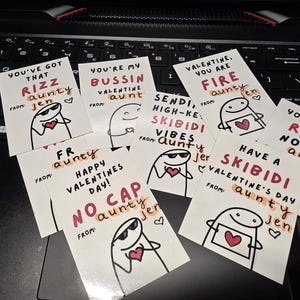 YOU'VE GOT
THAT
RIZZ
FROM: aunty
jen
YOU'RE MY
BUSSIN
VALENTINE
FROM: aunt
VALENTINE,
YOU ARE
FIRE
FROM: aunty
jen
SENDI
HIGH-KE
SKIBIDI
VIBES
FROM: aunty
R
FR
aunty
FROM:
HAPPY
VALENTINES
DAY!
NO CAP
FROM: aunty
jen
HAVE A
SKIBIDI
VALENTINE'S DAY
FROM: aunty
jen